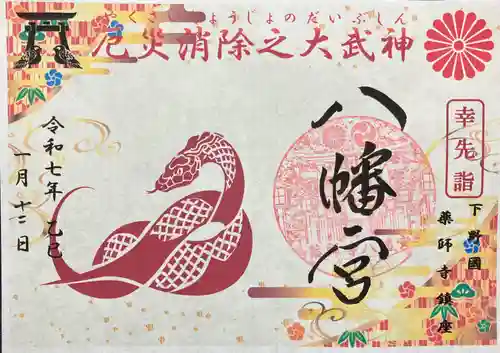 やくさいしょうじょのだいぶしん
厄災消除之大武神
幸先詣
八幡宮
下野國
薬師寺鎮座
令和七年 乙巳
一月十二日